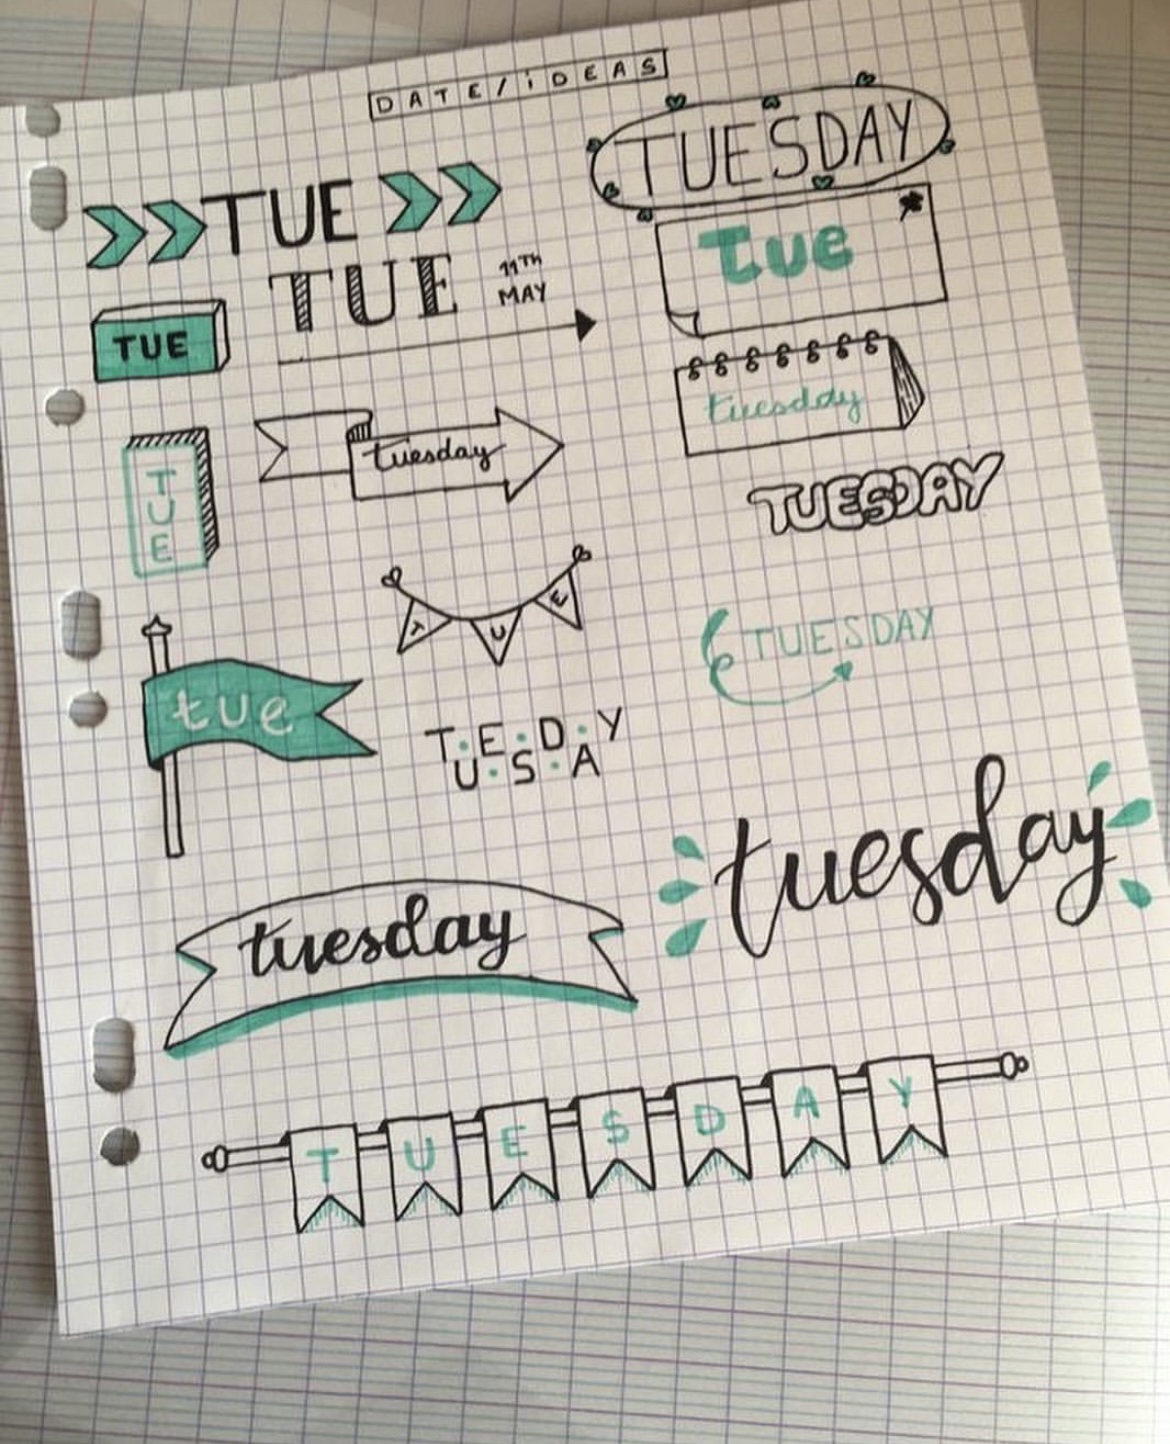 DATE/iDEAS
TUESDAY
TUE
Tue
TUE
11TH
MAY
TUE
tuesday
tuesday
TUE
TUESDAY
TUE
TUESDAY
tue
TUESDAY
tuesday
tuesday
TUESDAY